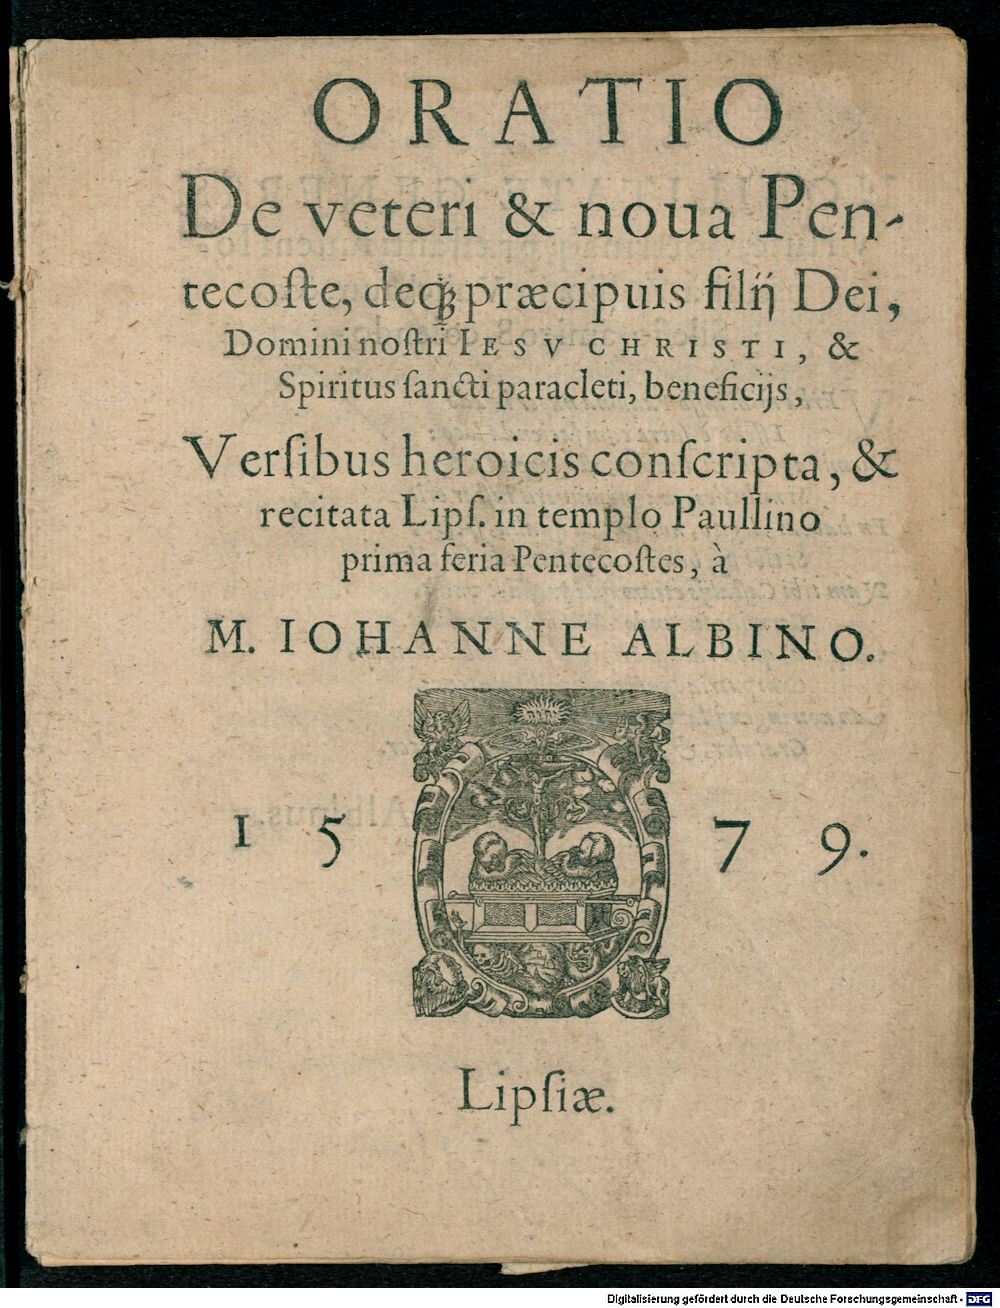 ORATIO
De veteri & noua Pen-
tecoſte, deqꝫ præcipuis filij Dei,
Domini noſtri IESV CHRISTI, &
Spiritus ſancti paracleti, beneficijs,
Verſibus heroicis conſcripta, &
recitata Lipſ. in templo Paullino
prima feria Pentecoſtes, à
M. IOHANNE ALBINO.
1579.
Lipſiæ.
Digitalisierung gefördert durch die Deutsche Forschungsgemeinschaft - DFG